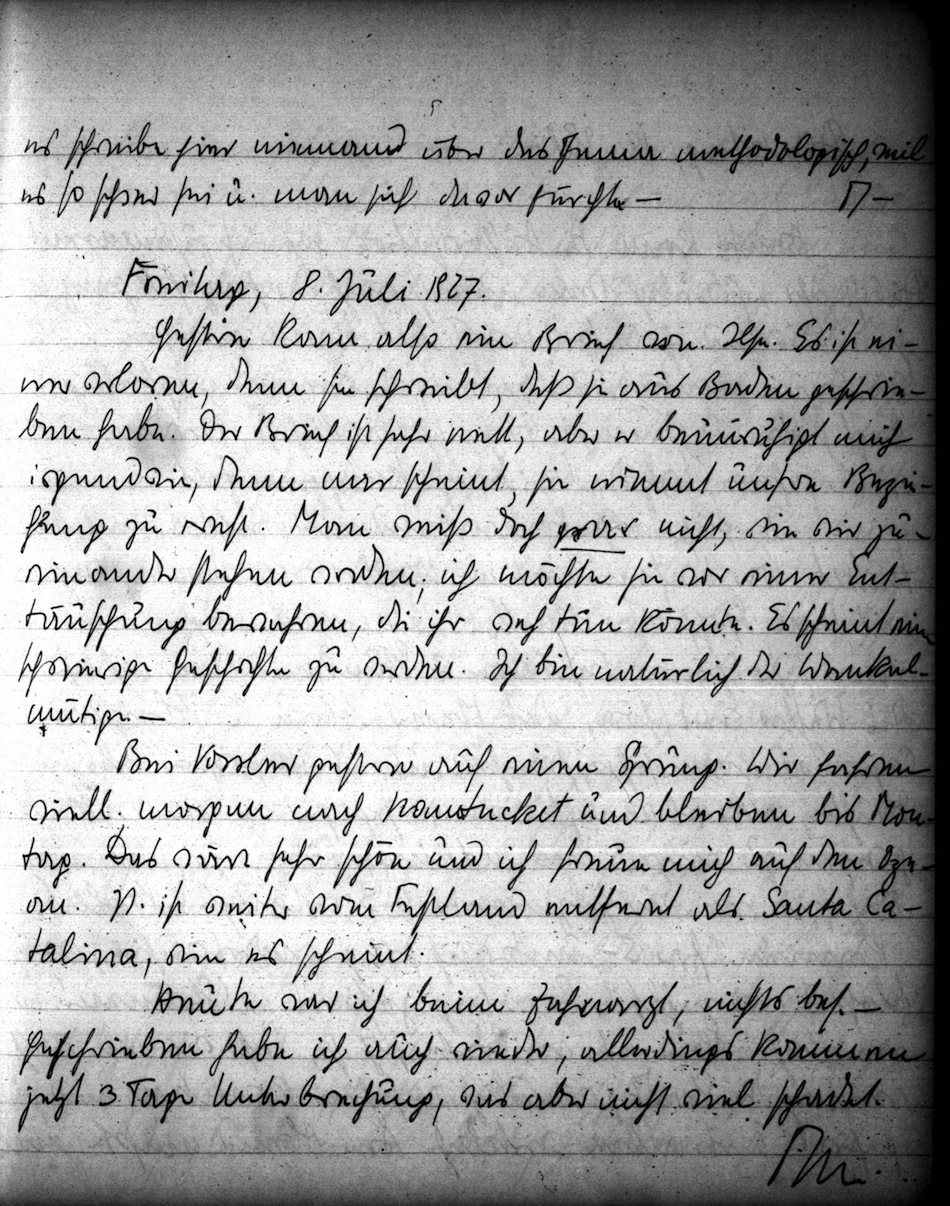 es schreibe hier niemand über das Thema methodologisch, weil
es so schwer sei u. man sich davor fürchte —
Freitag, 8. Juli 1927.
Gestern kam also ein Brief von Ilse. Es ist ei-
ner verloren, denn sie schreibt, daß sie aus Baden geschrie-
ben habe. Der Brief ist sehr nett, aber er beunruhigt mich
irgendwie, denn mir scheint, sie nimmt unsre Bezie-
hung zu ernst. Man weiß doch gar nicht, wie wir zu-
einander stehen werden; ich möchte sie vor einer Ent-
täuschung bewahren, die ihr weh tun könnte. Es scheint eine
schwierige Geschichte zu werden. Ich bin natürlich der Wankel-
mütige. —
Bei Kessler gestern auf einen Sprung. Wir fahren
viell. morgen nach Nantucket und bleiben bis Mon-
tag. Das wäre sehr schön und ich freue mich auf den Oze-
an. N. ist weiter vom Festland entfernt als Santa Ca-
talina, wie es scheint.
Heute war ich beim Zahnarzt, nichts bes. —
Geschrieben habe ich auch wieder, allerdings kommen
jetzt 3 Tage Unterbrechung, was aber nicht viel schadet.